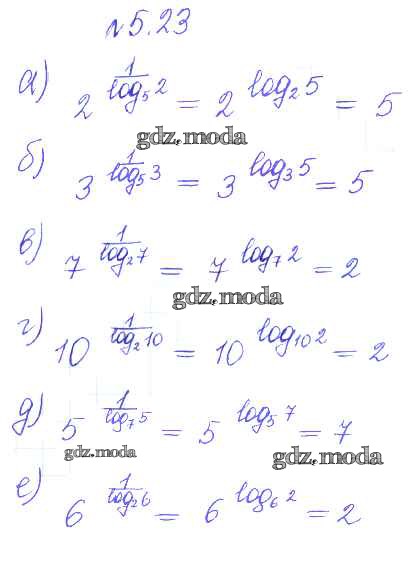 №5.23
а) 2^(1/log₅2) = 2^(log₂5) = 5
gdz.moda
б) 3^(1/log₅3) = 3^(log₃5) = 5
в) 7^(1/log₂7) = 7^(log₇2) = 2
gdz.moda
г) 10^(1/log₂10) = 10^(log₁₀2) = 2
д) 5^(1/log₇5) = 5^(log₅7) = 7
gdz.moda gdz.moda
е) 6^(1/log₂6) = 6^(log₆2) = 2